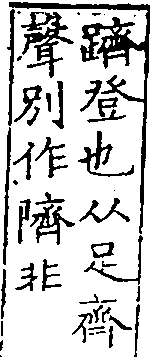 躋登也从足齊
聲別作隮非